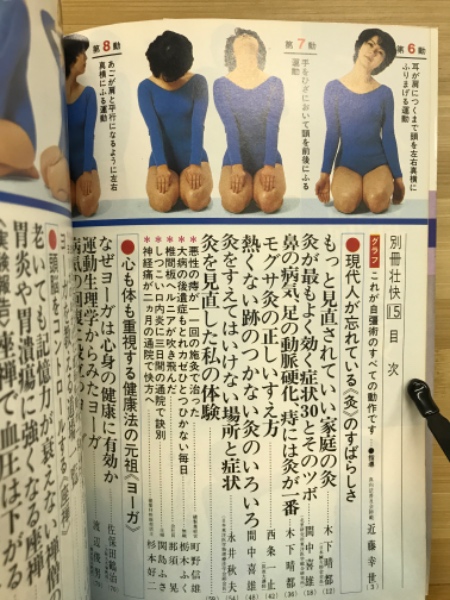 第6動
耳が肩につくまで頭を左右真横に
ふりまげる運動
第7動
手をひざにおいて頭を前後にふる
運動
第8動
あごが肩と平行になるように左右
真横にふる運動
別冊壮快15目次
グラフ これが自彊術のすべての動作です
●指導
近藤幸世
●現代人が忘れている《灸》のすばらしさ
もっと見直されていい家庭の灸
木下晴都
灸が最もよく効く症状30とそのツボ
間中喜雄
鼻の病気、足の動脈硬化、痔には灸が一番
木下晴都
モグサ灸の正しいすえ方
西条一止
熱くない跡のつかない灸のいろいろ
間中喜雄
灸をすえてはいけない場所と症状
永井秋夫
灸を見直した私の体験
*悪性の痔が一回の施灸で治った
町野信雄
*大病の後遺症もとれカゼひとつひかない毎日
栃木ふく
*椎間板ヘルニアが吹き飛んだ
那須晃
*しつこい口内炎に三日間の通院で訣別
関島ふさ
*神経痛が二ヵ月の通院で快方へ
杉本好二
●心も体も重視する健康法の元祖《ヨーガ》
なぜヨーガは心身の健康に有効か
佐保田鶴治
運動生理学からみたヨーガ
老いても記憶力が衰えない禅僧
胃炎や胃潰瘍に強くなる座禅
《実験報告》座禅で血圧は下がる